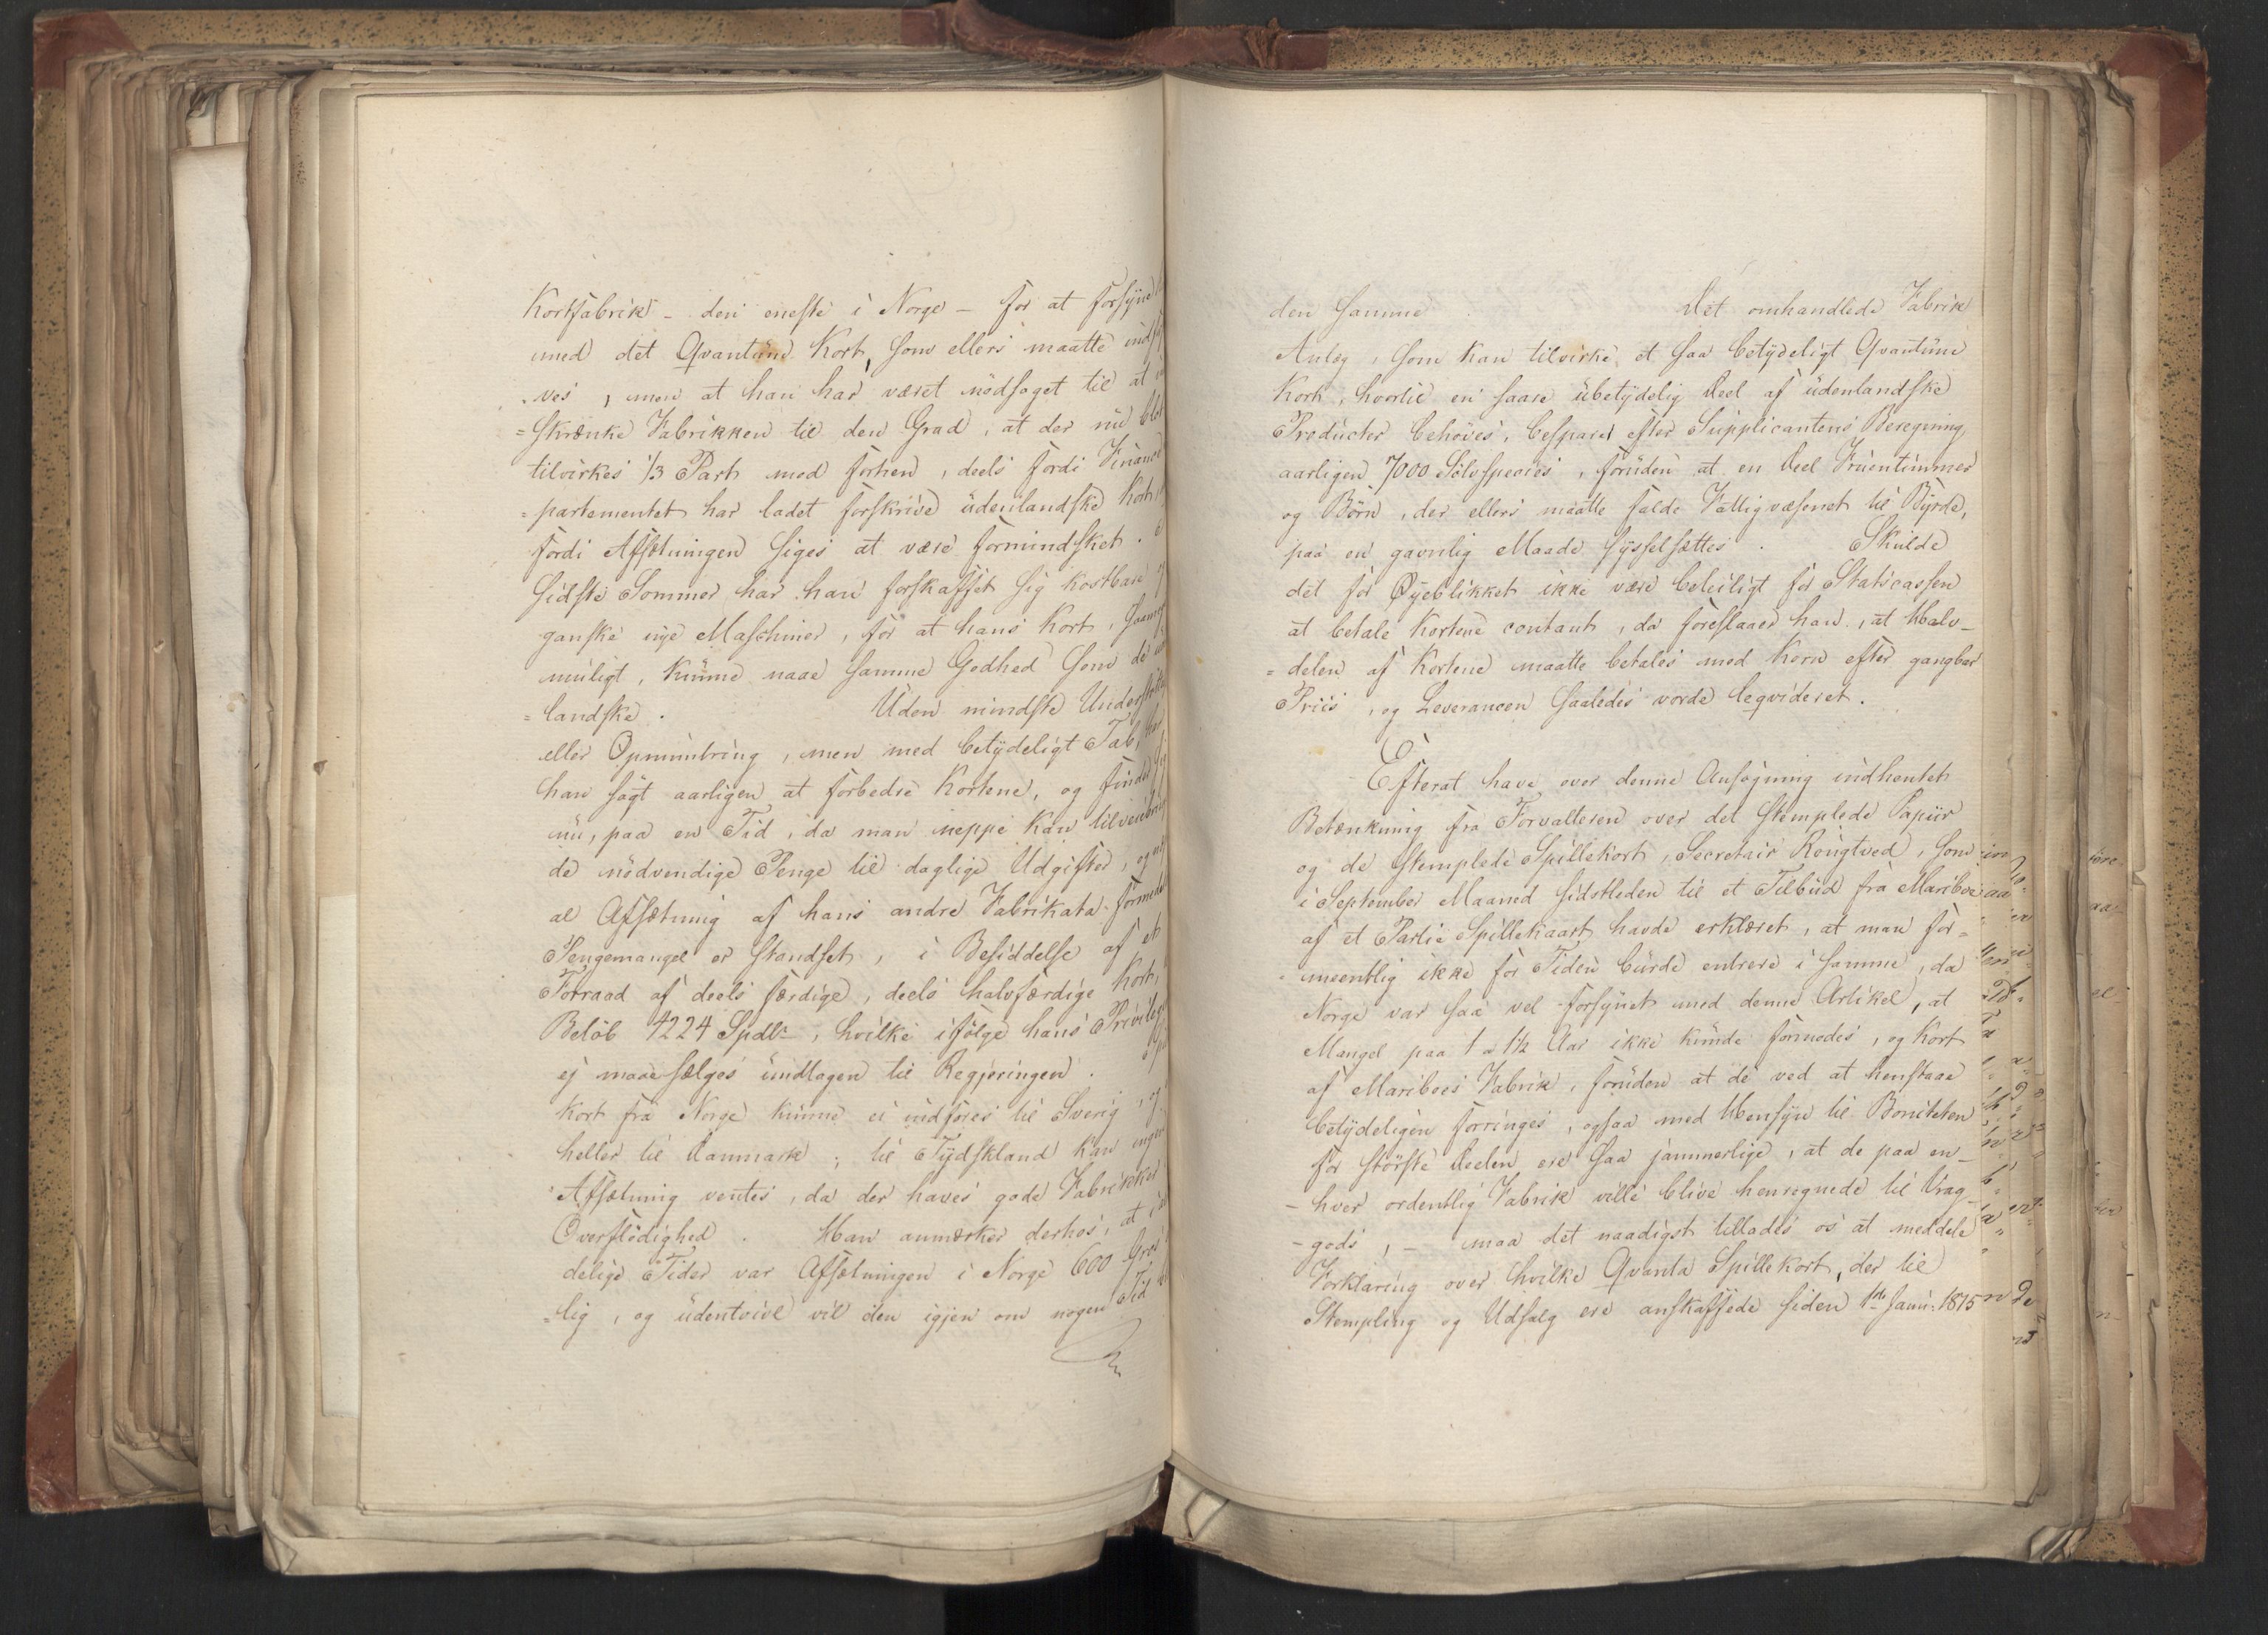 Kortfabrik - den eneste i Norge - for at forsyne
med det Qvantum Kort, som ellers maatte indfø
ves, men at han har været nödsaget til at
=skrænke Fabrikken til den Grad, at der nu blot
tilvirkes 1/3 Part mod forhen, deels fordi Finance
=partementet har ladet forskrive udenlandske Kort
fordi Afsætningen siges at være formindsket.
Sidste Sommer har han forskaffet sig kostbare
ganske nye Maschiner, for at hans Kort, saavel
muligt, kunne naae samme Godhed som de
=landske. Uden mindste Understötte
eller Opmuntring, men med betydeligt Tab, har
han sögt aarligen at forbedre Kortene, og finder
nu, paa en Tid, da man neppe kan tilveiebrin
de nödvendige Penge til daglige Udgifter, og
al Afsætning af hans andre Fabrikata formedelst
Pengemangel er standset, i Besiddelse af et
Forraad af deels færdige, deels halvfærdige Kort,
Belöb 4224 Spdlr, hvilke ifölge hans Privileg
ej maae sælges undtagen til Regjeringen.
Kort fra Norge kunne ei indföres til Sverig, ej
heller til Danmark; til Tydskland kan ingen
Afsætning ventes, da der haves gode Fabrikker
Overflödighed. Han anmærker derhos, at
delige Tider var Afsætningen i Norge 600 Gros
=lig, og udentvivl vil den igjen om nogen Tid
den samme. Det omhandlede Fabrik
Anlæg, som kan tilvirke et saa betydeligt Qvantum
Kort, hvortil en saare ubetydelig Deel af udenlandske
Producter behöves, besparer efter Supplicantens Beregning
aarligen 7000 Sölvspecies, foruden at en Deel Fruentimmer
og Börn, der ellers maatte falde Fattigvæsenet til Byrde,
paa en gavnlig Maade sysselsættes. Skulde
det for Øyeblikket ikke være beleiligt for Statscassen
at betale Kortene contant, da foreslaaer han, at Halv-
=delen af Kortene maatte betales med Korn efter gangbar
Priis, og Leverancen saaledes vorde leqvideret.
Efterat have over denne Ansögning indhentet
Betænkning fra Forvalteren over det stemplede Papiir
og de stemplede Spillekort, Secretair Rongtved, som
i September Maaned sidstleden til et Tilbud fra Mariboe
af et Partie Spillekaart havde erklæret, at man for=
meentlig ikke for Tiden burde entrere i samme, da
Norge var saa vel forsynet med denne Artikel, at
Mangel paa 1 a 1 1/2 Aar ikke kunde formodes, og Kort
af Mariboes Fabrik, foruden at de ved at henstaae
betydeligen forringes, ogsaa med Hensyn til Boniteten
for störste Deelen ere saa jammerlige, at de paa en-
-hver ordentlig Fabrik ville blive henregnede til Vrag-
-gods, - maa det naadigst tillades os at meddele
Forklaring over hvilke Qvanta Spillekort, der til
Stempling og Udsalg ere anskaffede siden 1ste Janu: 1815